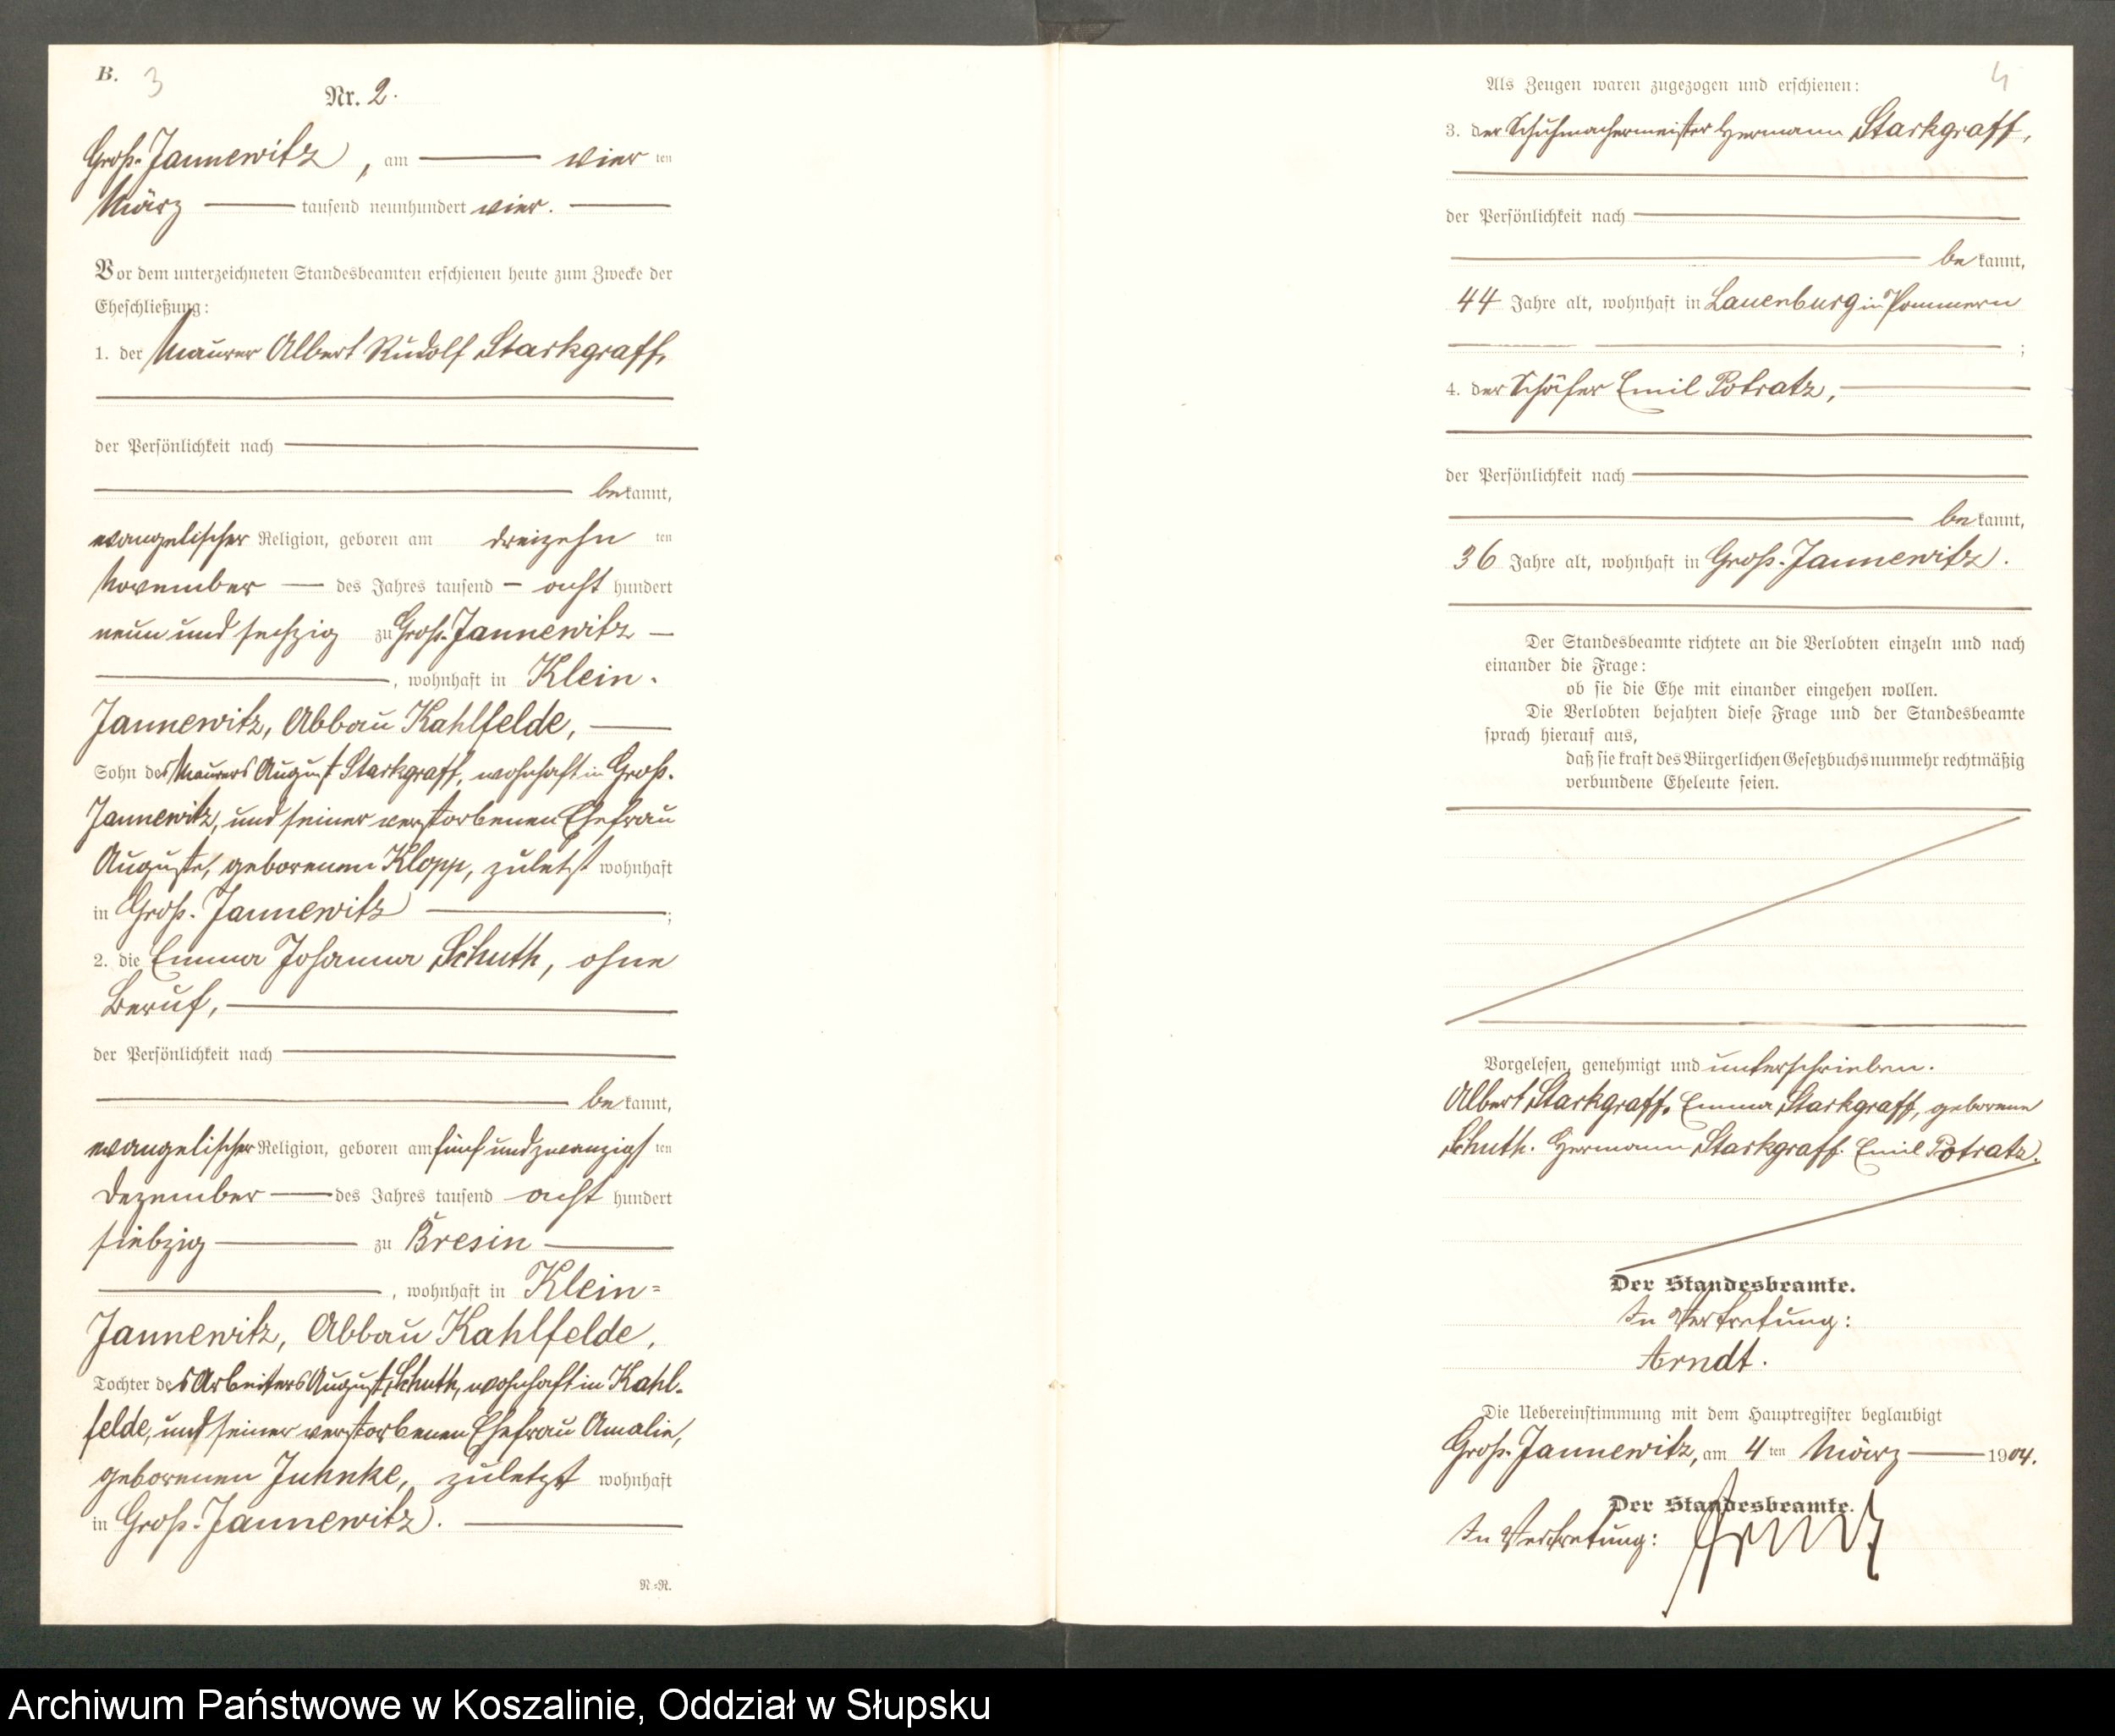 B. 3
Nr. 2.
Groß-Jannewitz, am vier ten
März tausend neunhundert vier.
Vor dem unterzeichneten Standesbeamten erschienen heute zum Zwecke der
Eheschließung:
1. der Maurer Albert Rudolf Starkgraff,
der Persönlichkeit nach
be kannt,
evangelischer Religion, geboren am dreizehn ten
November des Jahres tausend acht hundert
neun und sechzig zu Groß-Jannewitz
, wohnhaft in Klein-
Jannewitz, Abbau Kahlfelde,
Sohn des Maurers August Starkgraff, wohnhaft in Groß-
Jannewitz, und seiner verstorbenen Ehefrau
Auguste, geborenen Klopp, zuletzt wohnhaft
in Groß-Jannewitz ;
2. die Emma Johanna Schuth, ohne
Beruf,
der Persönlichkeit nach
be kannt,
evangelischer Religion, geboren am fünf und zwanzigs ten
Dezember des Jahres tausend acht hundert
siebzig zu Bresin
, wohnhaft in Klein=
Jannewitz, Abbau Kahlfelde,
Tochter des Arbeiters August Schuth, wohnhaft in Kahl-
felde, und seiner verstorbenen Ehefrau Amalie,
geborenen Juhnke, zuletzt wohnhaft
in Groß-Jannewitz.
N.=R.
4
Als Zeugen waren zugezogen und erschienen:
3. der Schuhmachermeister Hermann Starkgraff,
der Persönlichkeit nach
be kannt,
44 Jahre alt, wohnhaft in Lauenburg in Pommern
;
4. der Schäfer Emil Potratz,
der Persönlichkeit nach
be kannt,
36 Jahre alt, wohnhaft in Groß-Jannewitz.
Der Standesbeamte richtete an die Verlobten einzeln und nach
einander die Frage:
ob sie die Ehe mit einander eingehen wollen.
Die Verlobten bejahten diese Frage und der Standesbeamte
sprach hierauf aus,
daß sie kraft des Bürgerlichen Gesetzbuchs nunmehr rechtmäßig
verbundene Eheleute seien.
Vorgelesen, genehmigt und unterschrieben.
Albert Starkgraff. Emma Starkgraff, geborene
Schuth. Hermann Starkgraff. Emil Potratz.
Der Standesbeamte.
In Vertretung:
Arndt.
Die Uebereinstimmung mit dem Hauptregister beglaubigt
Groß-Jannewitz, am 4 ten März 1904.
Der Standesbeamte.
In Vertretung: Arndt
Archiwum Państwowe w Koszalinie, Oddział w Słupsku